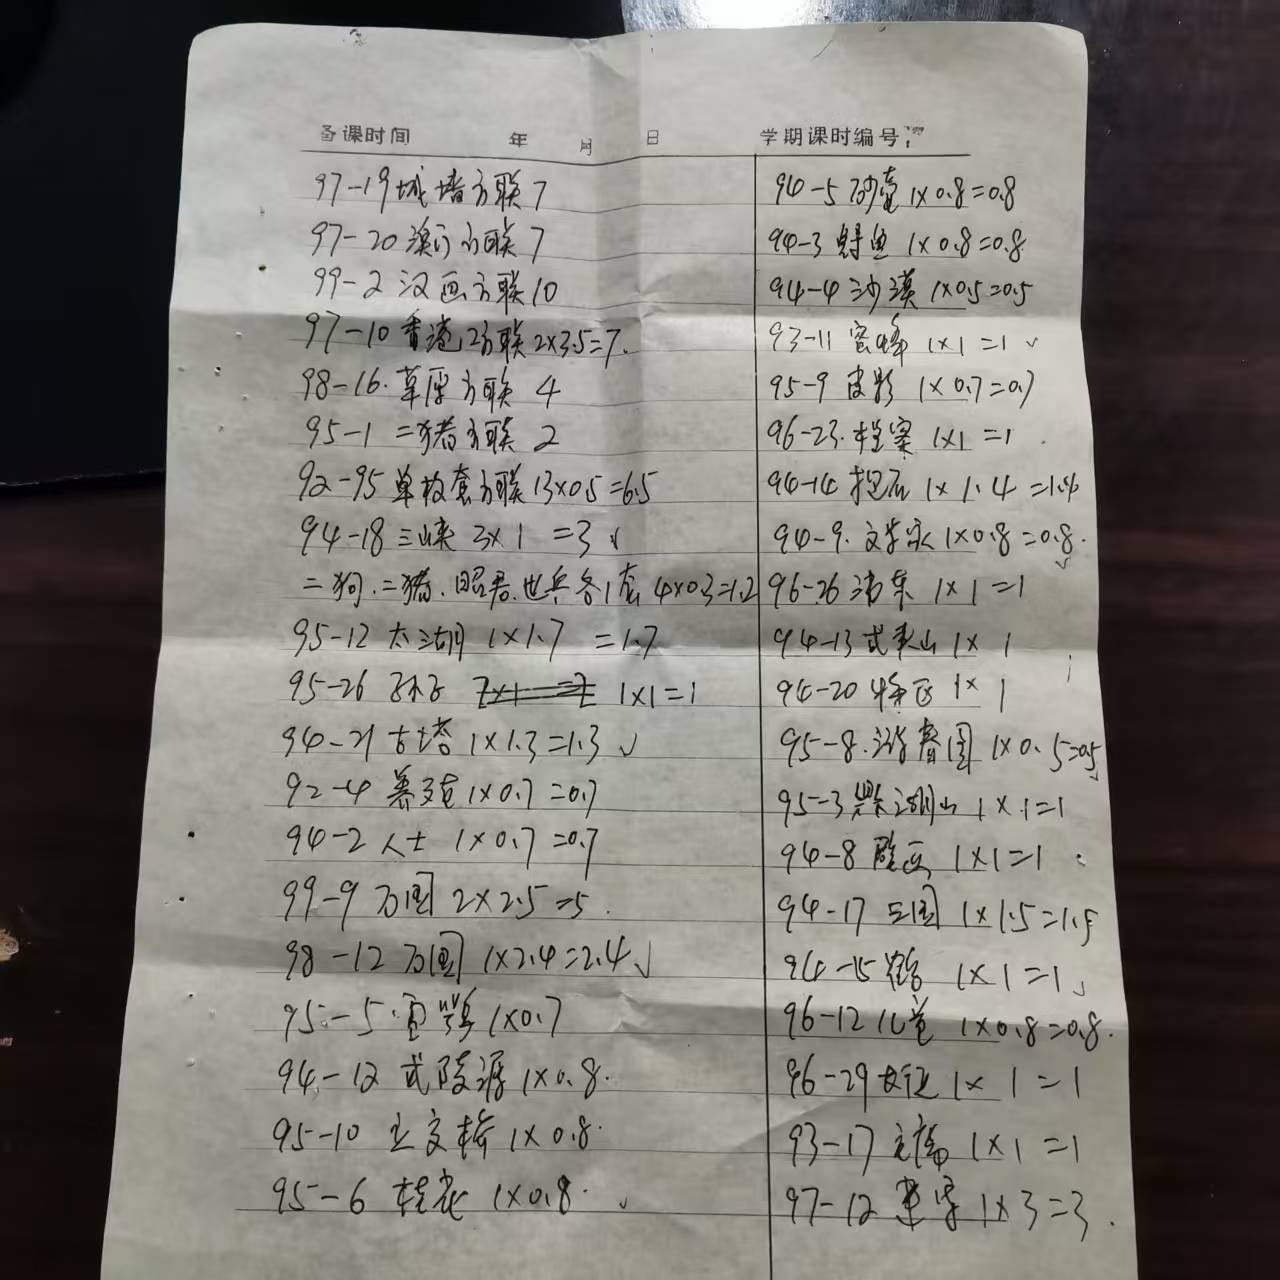 备课时间 年 月 日
学期课时编号
97-19城墙方联7
97-20澳门方联7
99-2汉画方联10
97-10香港2方联2x3.5=7
98-16.草原方联4
95-1二猪方联2
92-95单枚套方联13x0.5=6.5
94-18三峡3x1=3√
二狗.二猪.昭君.世乒各1套4x0.3=1.2
95-12太湖1x1.7=1.7
95-26孙子 1x1=1
94-21古塔1x1.3=1.3√
92-4 1x0.7=0.7
94-2人士1x0.7=0.7
99-9万国2x2.5=5
98-12万国1x2.4=2.4√
95-5.雷鸮1x0.7
94-12武陵源1x0.8
95-10立交桥1x0.8
95-6桂花1x0.8√
94-5砂壶1x0.8=0.8
94-3鲟鱼1x0.8=0.8
94-4沙漠1x0.5=0.5
93-11蜜蜂1x1=1√
95-9皮影1x0.7=0.7
96-23.档案1x1=1
94-14 1x1.4=1.4
94-9.文学家1x0.8=0.8√
96-26 1x1=1
94-13武夷山1x1
94-20特区1x1
95-8.游春图1x0.5=0.5
95-3鼎湖山1x1=1
94-8壁画1x1=1
94-17三国1x1.5=1.5
94-15鹤1x1=1√
96-12儿童1x0.8=0.8
96-29长征1x1=1
93-17 1x1=1
97-12 1x3=3